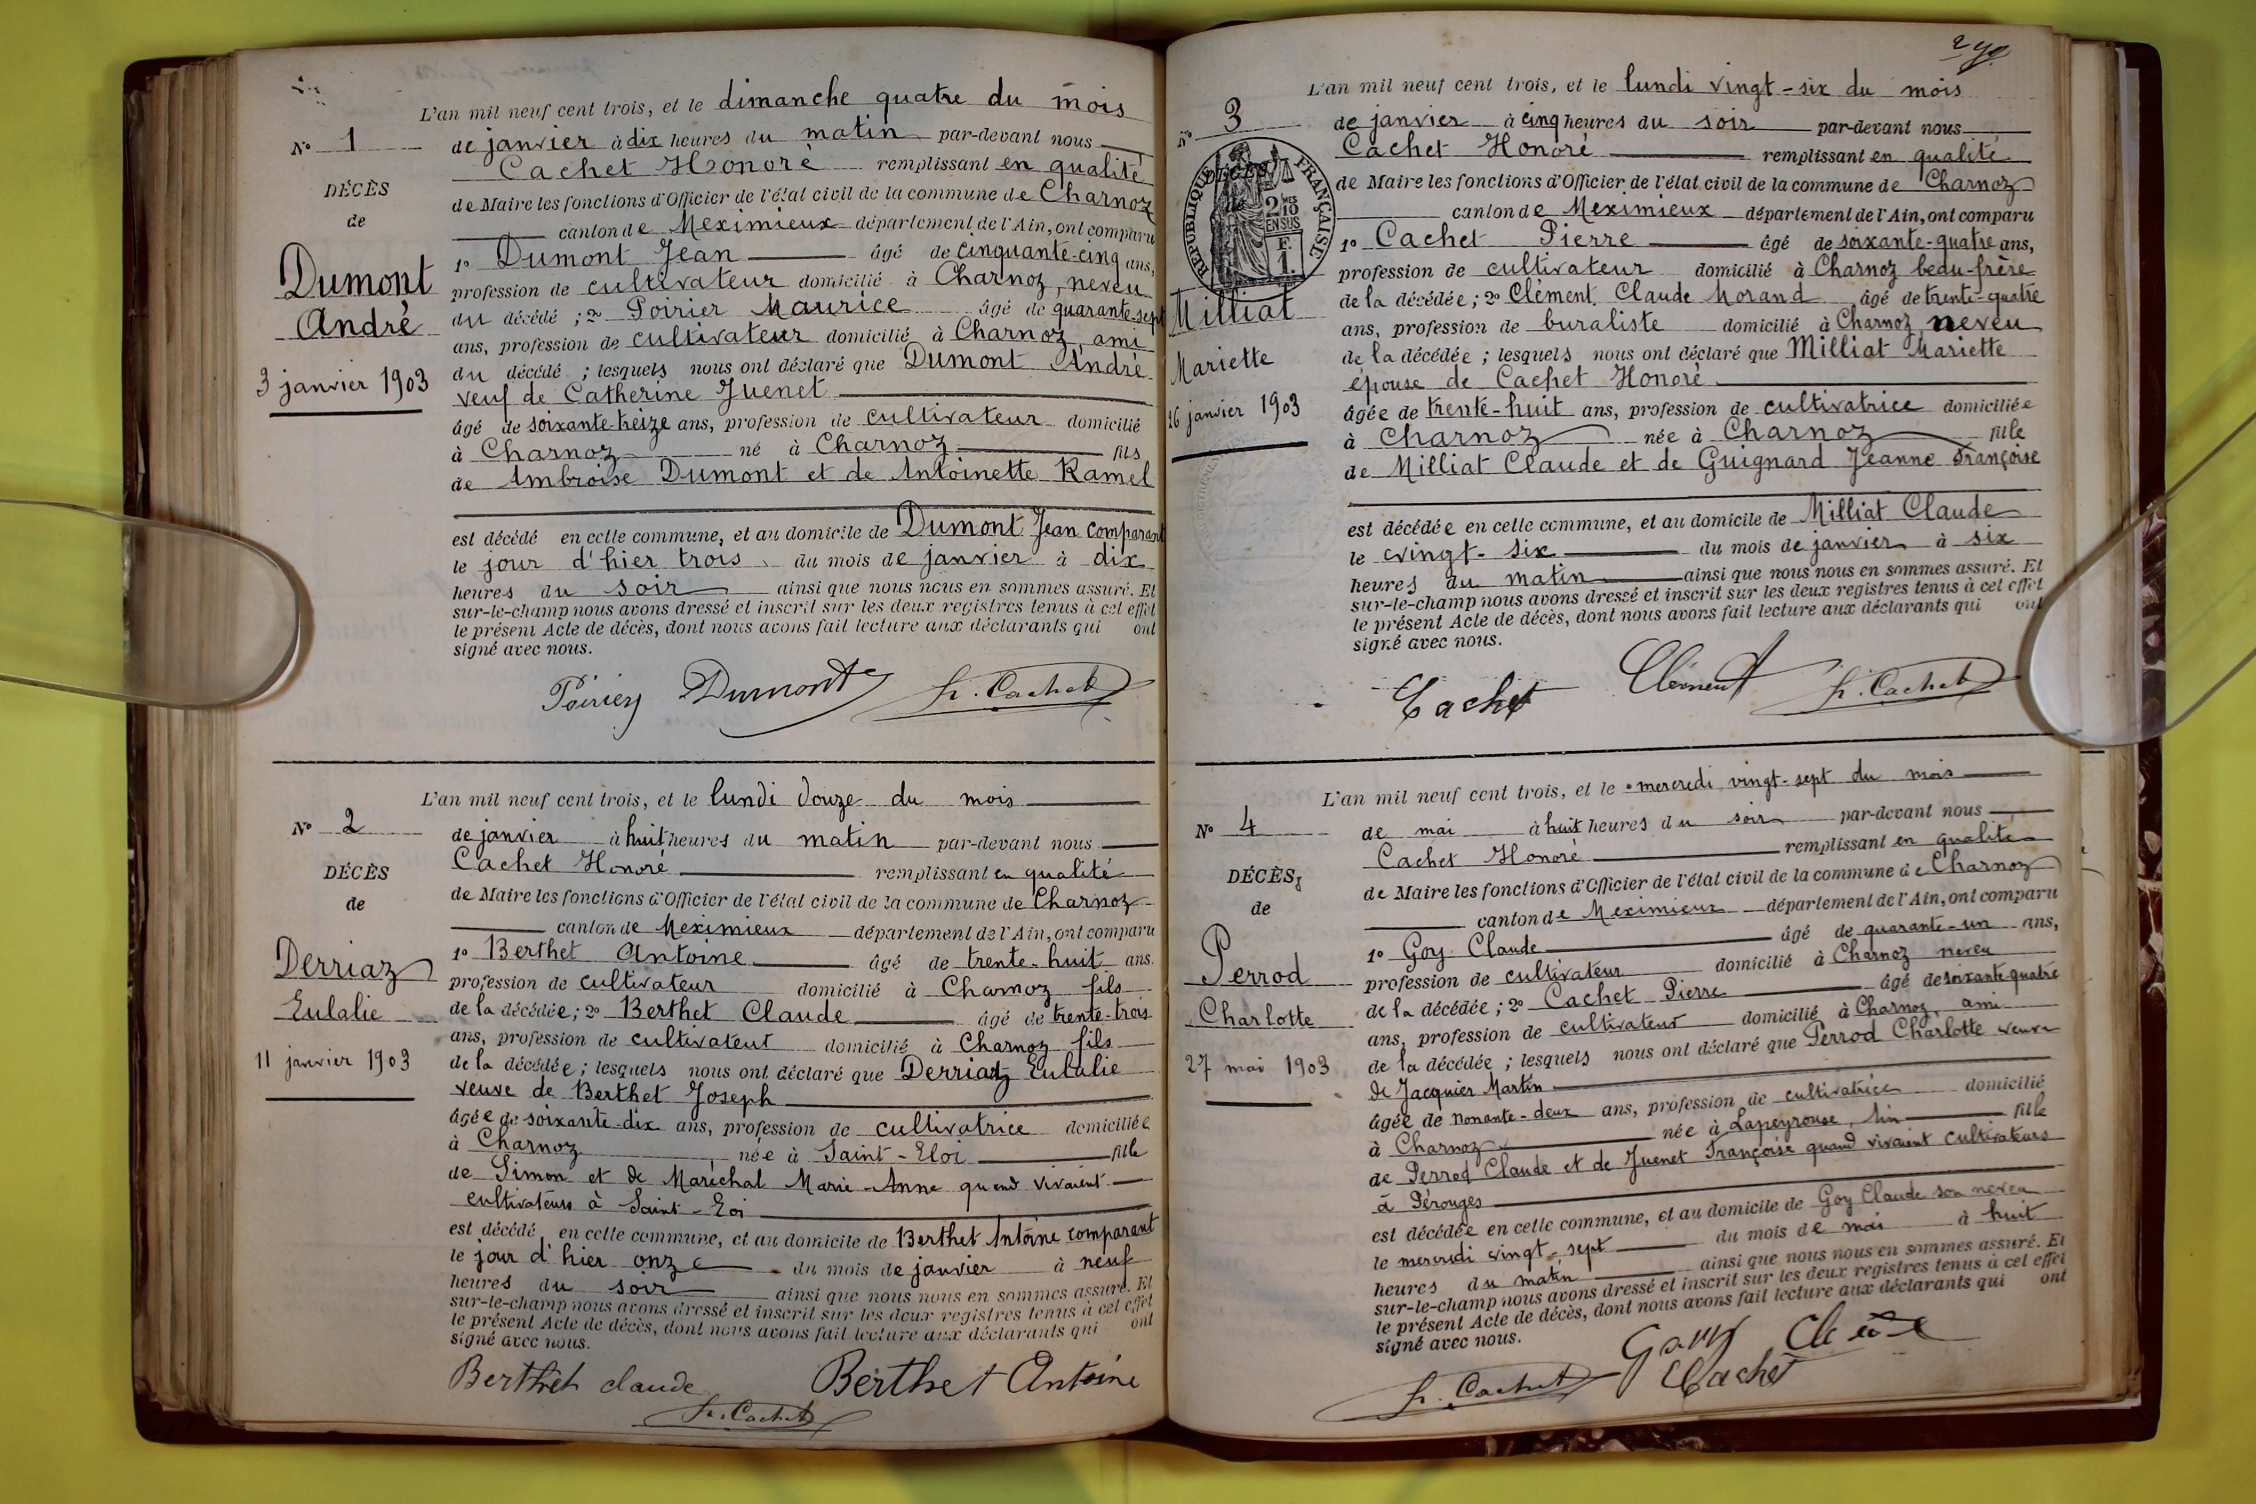 L'an mil neuf cent trois, et le dimanche quatre du mois
N° 1
de janvier à dix heures du matin par-devant nous
Cachet Honoré remplissant en qualité
DÉCÈS
de Maire les fonctions d'Officier de l'état civil de la commune de Charnoz
de
canton de Meximieux département de l'Ain, ont comparu
1° Dumont Jean âgé de cinquante-cinq ans,
Dumont
profession de cultivateur domicilié à Charnoz, neveu
du décédé ; 2° Poirier Maurice âgé de quarante-sept
André
ans, profession de cultivateur domicilié à Charnoz, ami
du décédé ; lesquels nous ont déclaré que Dumont André
3 janvier 1903
veuf de Catherine Juenet
âgé de soixante-treize ans, profession de cultivateur domicilié
à Charnoz né à Charnoz fils
de Ambroise Dumont et de Antoinette Ramel
est décédé en cette commune, et au domicile de Dumont Jean comparant
le jour d'hier trois du mois de janvier à dix
heures du soir ainsi que nous nous en sommes assuré. Et
sur-le-champ nous avons dressé et inscrit sur les deux registres tenus à cet effet
le présent Acte de décès, dont nous avons fait lecture aux déclarants qui ont
signé avec nous.
Poirier Dumont h. Cachet
L'an mil neuf cent trois, et le lundi douze du mois
N° 2
de janvier à huit heures du matin par-devant nous
Cachet Honoré remplissant en qualité
DÉCÈS
de Maire les fonctions d'Officier de l'état civil de la commune de Charnoz
de
canton de Meximieux département de l'Ain, ont comparu
1° Berthet Antoine âgé de trente-huit ans.
Derriaz
profession de cultivateur domicilié à Charnoz fils
Eulalie
de la décédée ; 2° Berthet Claude âgé de trente-trois
ans, profession de cultivateur domicilié à Charnoz fils
11 janvier 1903
de la décédée ; lesquels nous ont déclaré que Derriaz Eulalie
veuve de Berthet Joseph
âgée de soixante-dix ans, profession de cultivatrice domiciliée
à Charnoz née à Saint-Eloi fille
de Simon et de Maréchal Marie-Anne quand vivaient
cultivateurs à Saint-Eoi
est décédé en cette commune, et au domicile de Berthet Antoine comparant
le jour d'hier onze du mois de janvier à neuf
heures du soir ainsi que nous nous en sommes assuré. Et
sur-le-champ nous avons dressé et inscrit sur les deux registres tenus à cet effet
le présent Acte de décès, dont nous avons fait lecture aux déclarants qui ont
signé avec nous.
Berthet claude Berthet Antoine
h. Cachet
L'an mil neuf cent trois, et le lundi vingt-six du mois
N° 3
de janvier à cinq heures du soir par-devant nous
Cachet Honoré remplissant en qualité
DÉCÈS
RÉPUBLIQUE FRANÇAISE
2/10 EN SUS
F. 1.
de Maire les fonctions d'Officier de l'état civil de la commune de Charnoz
de
canton de Meximieux département de l'Ain, ont comparu
1° Cachet Pierre âgé de soixante-quatre ans,
profession de cultivateur domicilié à Charnoz beau-frère
Milliat
de la décédée ; 2° Clément Claude Morand âgé de trente-quatre
ans, profession de buraliste domicilié à Charnoz neveu
Mariette
de la décédée ; lesquels nous ont déclaré que Milliat Mariette
épouse de Cachet Honoré
26 janvier 1903
âgée de trente-huit ans, profession de cultivatrice domiciliée
à Charnoz née à Charnoz fille
de Milliat Claude et de Guignard Jeanne Françoise
est décédée en cette commune, et au domicile de Milliat Claude
le vingt-six du mois de janvier à six
heures du matin ainsi que nous nous en sommes assuré. Et
sur-le-champ nous avons dressé et inscrit sur les deux registres tenus à cet effet
le présent Acte de décès, dont nous avons fait lecture aux déclarants qui ont
signé avec nous.
Cachet Clément h. Cachet
L'an mil neuf cent trois, et le mercredi vingt-sept du mois
N° 4
de mai à huit heures du soir par-devant nous
Cachet Honoré remplissant en qualité
DÉCÈS
de Maire les fonctions d'Officier de l'état civil de la commune de Charnoz
de
canton de Meximieux département de l'Ain, ont comparu
1° Goy Claude âgé de quarante-un ans,
Perrod
profession de cultivateur domicilié à Charnoz neveu
Charlotte
de la décédée ; 2° Cachet Pierre âgé de soixante-quatre
ans, profession de cultivateur domicilié à Charnoz, ami
27 mai 1903
de la décédée ; lesquels nous ont déclaré que Perrod Charlotte veuve
de Jacquier Martin
âgée de nonante-deux ans, profession de cultivatrice domicilié
à Charnoz née à Lapeyrouse, Ain fille
de Perrod Claude et de Juenet Françoise quand vivaient cultivateurs
à Pérouges
est décédée en cette commune, et au domicile de Goy Claude son neveu
le mercredi vingt-sept du mois de mai à huit
heures du matin ainsi que nous nous en sommes assuré. Et
sur-le-champ nous avons dressé et inscrit sur les deux registres tenus à cet effet
le présent Acte de décès, dont nous avons fait lecture aux déclarants qui ont
signé avec nous.
h. Cachet Cachet